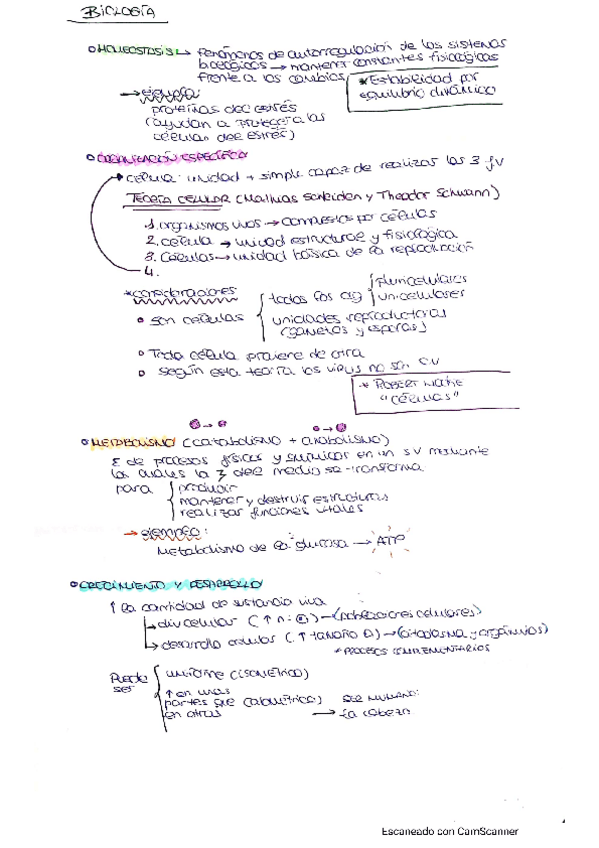 BIOLOGÍA
HOMEOSTASIS → fenómenos de autorregulación de los sistemas
biológicos → mantener constantes fisiológicas
frente a los cambios
* Estabilidad por
equilibrio dinámico
→ ejemplo:
proteínas del estrés
(ayudan a proteger a las
células del estrés)
ORGANIZACIÓN ESPECÍFICA
célula: unidad + simple capaz de realizar las 3 fv
TEORÍA CELULAR (Mathias Schleiden y Theodor Schwann)
1. organismos vivos → compuestos por células
2. célula → unidad estructural y fisiológica
3. Células → unidad básica de la reproducción
4.
*consideraciones
son células
todos los org
pluricelulares
unicelulares
unidades reproductoras
(gametos y esporas)
Toda célula proviene de otra
según esta teoría los virus no son SV
* ROBERT
"CÉLULAS"
METABOLISMO (catabolismo + anabolismo)
Σ de procesos físicos y químicos en un SV mediante
los cuales la del medio se transforma
para
producir
mantener y destruir estructuras
realizar funciones vitales
→ ejemplo:
Metabolismo de la glucosa → ATP
CRECIMIENTO Y DESARROLLO
↑ la cantidad de sustancia viva
div celular (↑ n:) → (celulares)
desarrollo celular (↑ tamaño) → (citoplasma y orgánulos)
* PROCESOS COMPLEMENTARIOS
Puede
ser
uniforme (isométrico)
↑ en unas
partes que (alométrico)
en otras
SER HUMANO:
→ la cabeza
Escaneado con CamScanner